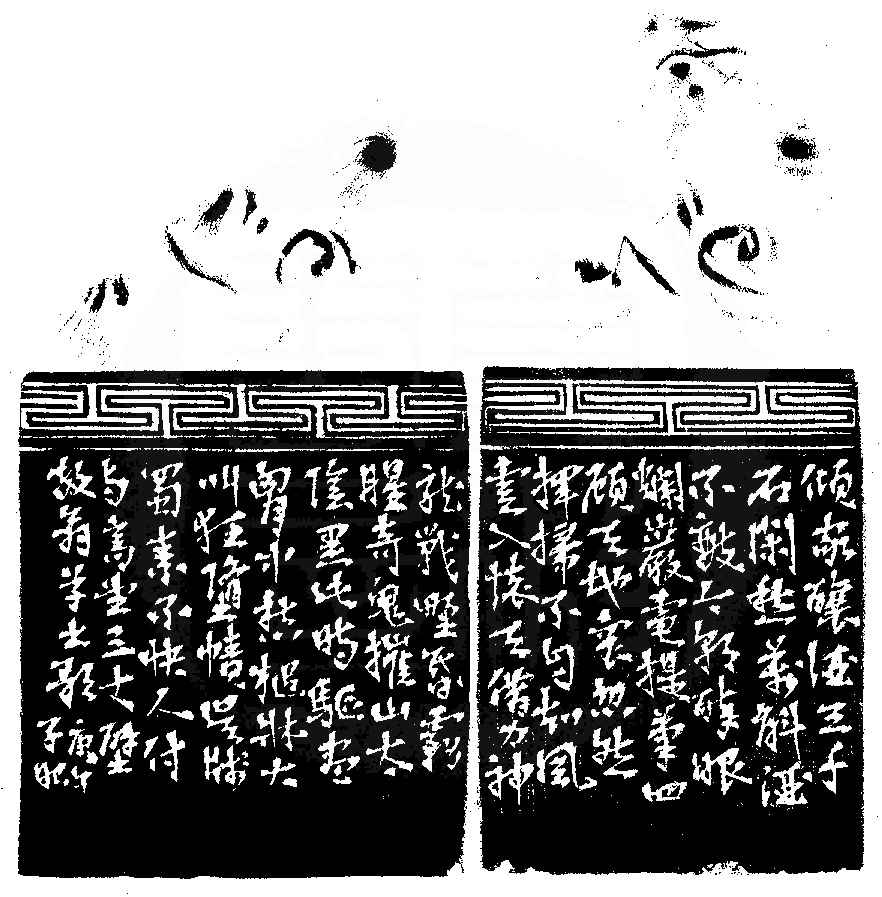 傾家釀酒三千
石閑愁萬斛酒
不敵今朝醉眼
爛巖電提筆四
顧天地窄忽然
揮掃不自知風
雲入懷天借力神
龍戰野昏霧
腥奇鬼摧山太
陰黑此時驅盡
胷中愁槌牀大
叫狂墮幘吳牋
蜀素不快人付
與高堂三丈壁
放翁草書歌